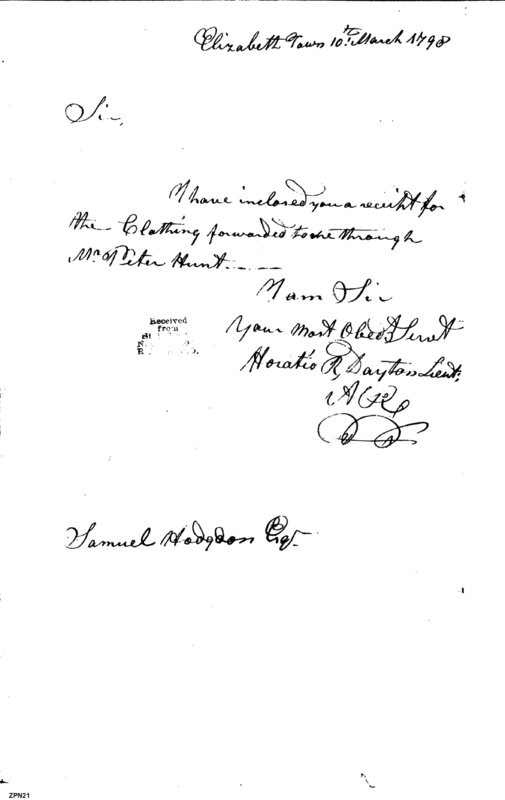 Elizabeth Town 10th March 1798
Sir,
I have inclosed you a receiht for
the Clothing forwarded to me through
Mr. Peter Hunt.
I am Sir
Your Most Obedt Servt
Horatio R, Dayton Lieut;
Received
from
Samuel Hodgdon Esqr
ZPN21